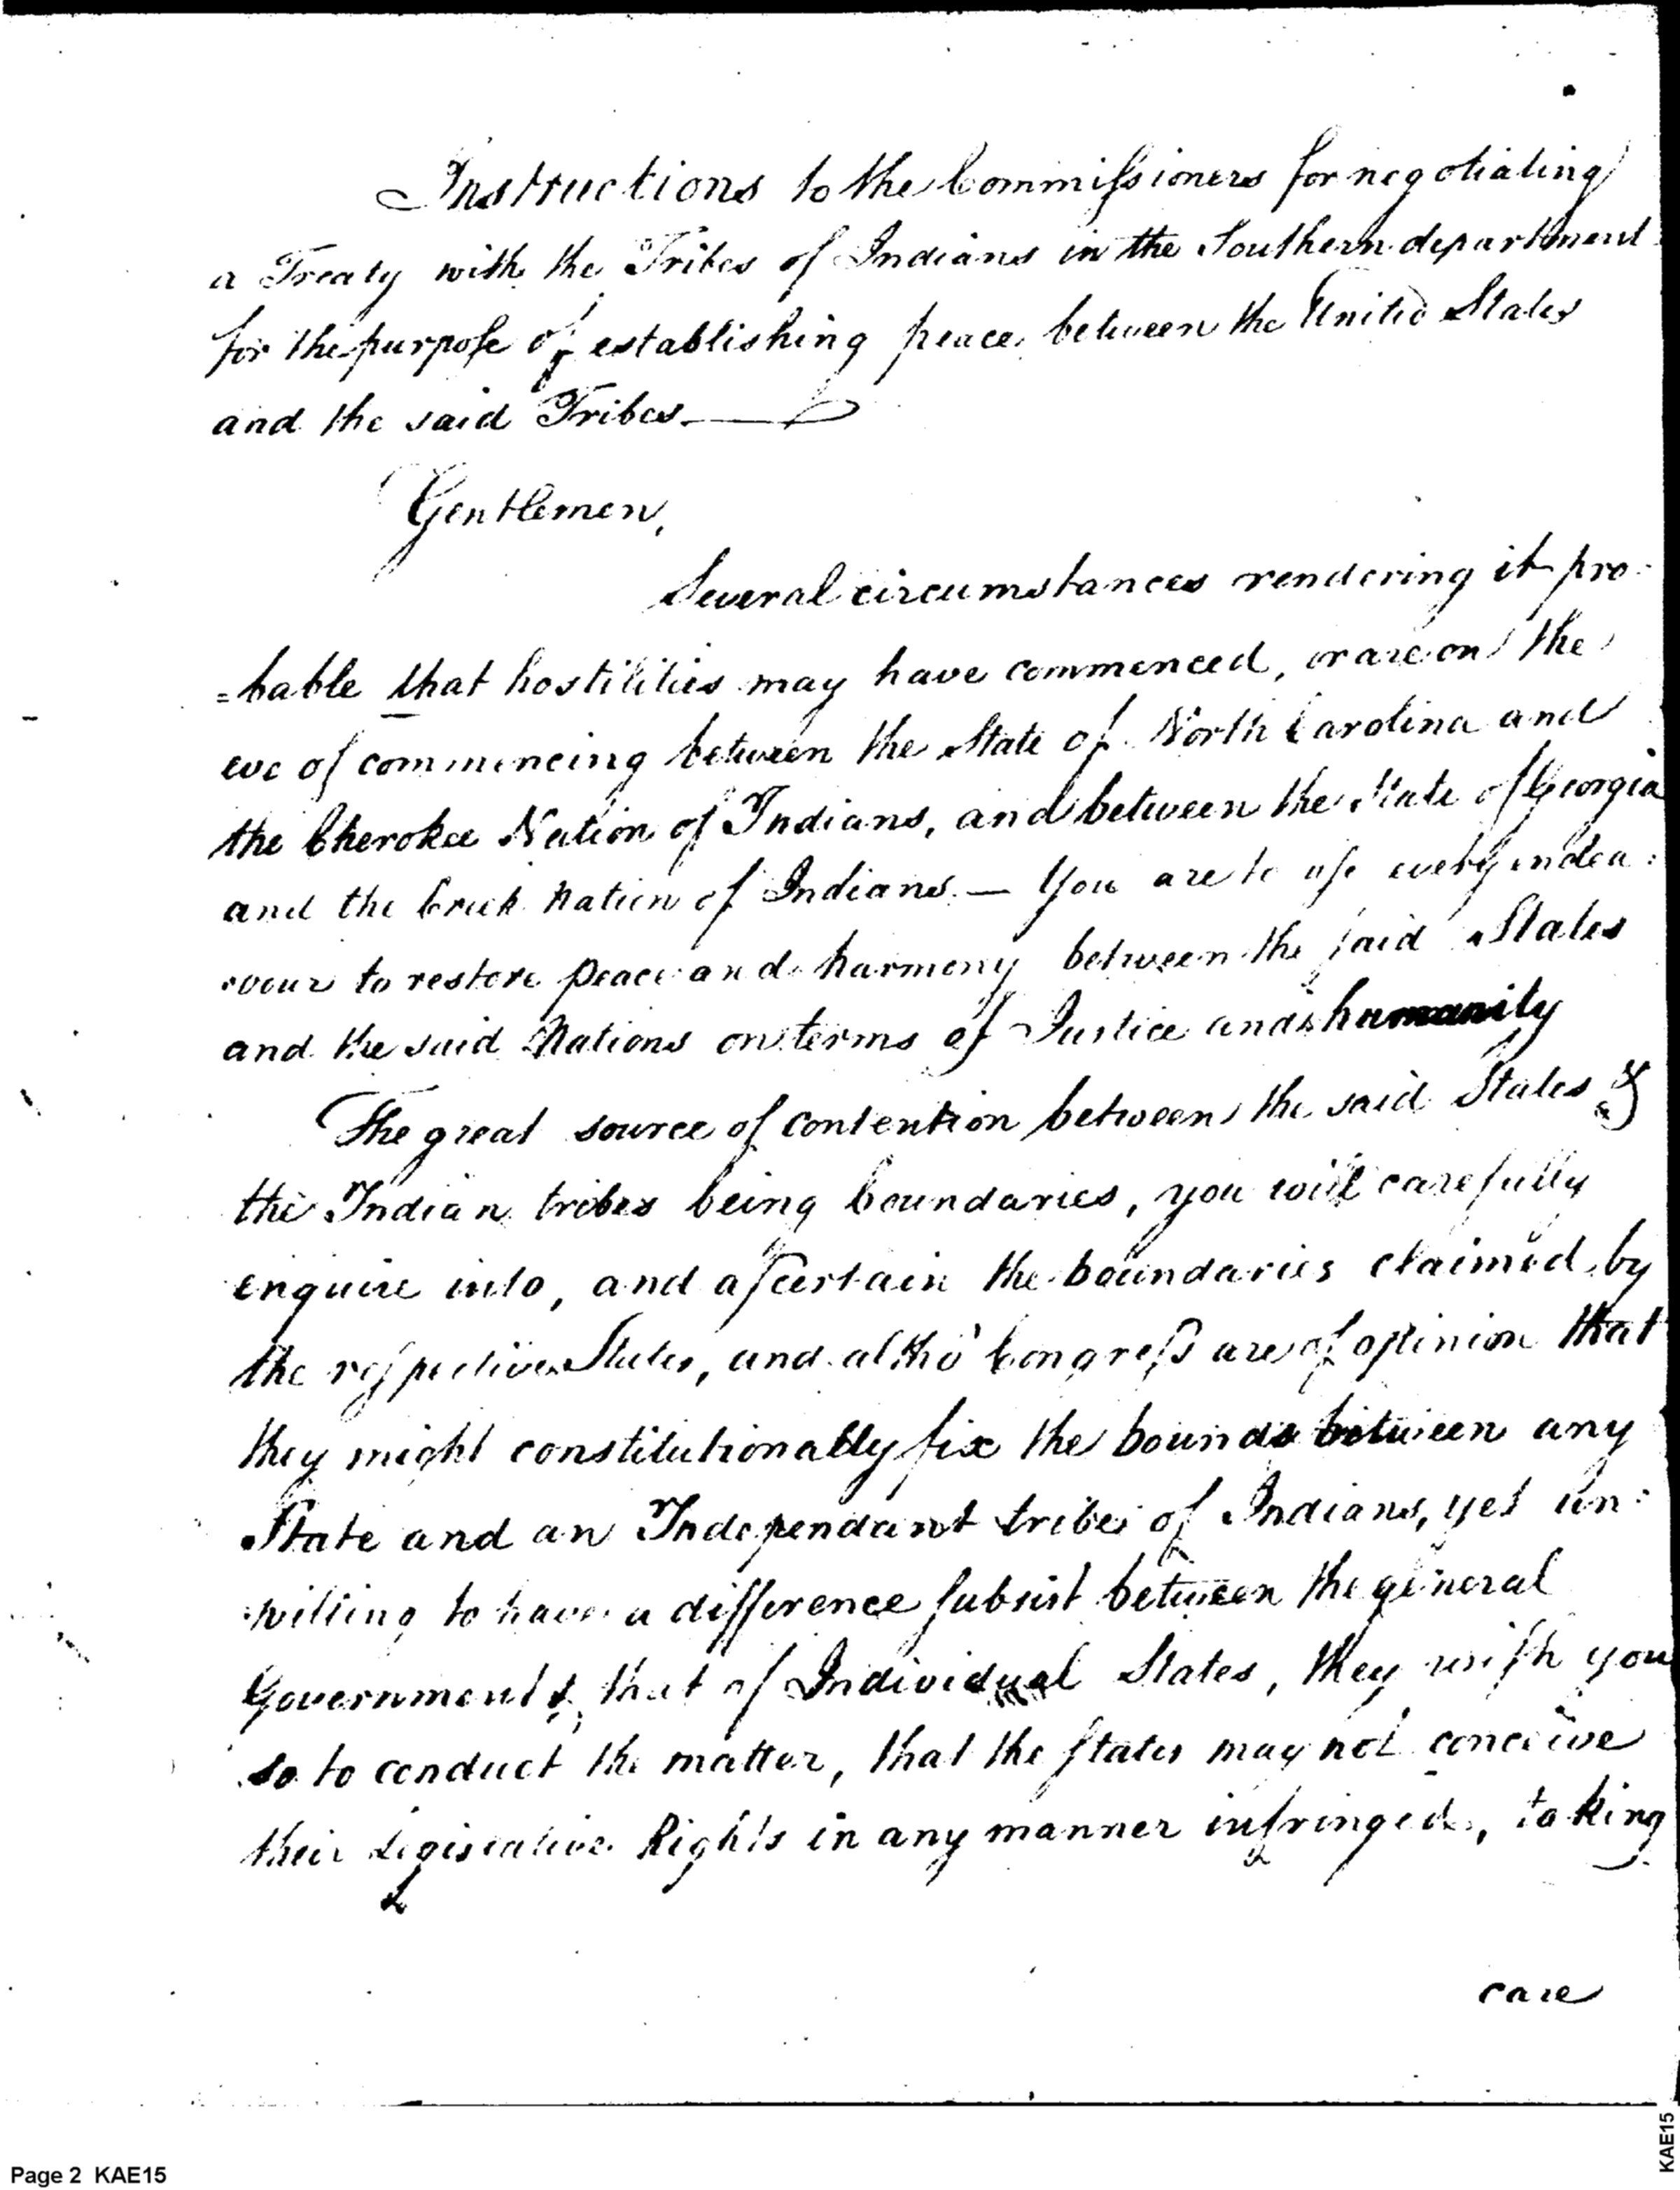 Instructions to the Commissioners for negotiating
a Treaty with the Tribes of Indians in the Southern department
for the purpose of establishing peace between the United States
and the said Tribes.
Gentlemen,
Several circumstances rendering it pro-
=bable that hostilities may have commenced, or are on the
eve of commencing between the State of North Carolina and
the Cherokee Nation of Indians, and between the State of Georgia
and the Creek Nation of Indians — You are to use every endea:
vour to restore peace and harmony between the said States
and the said Nations on terms of Justice and humanity
The great source of contention between the said States &
the Indian tribes being boundaries, you will carefully
enquire into, and ascertain the boundaries claimed by
the respective States, and altho' Congress are of opinion that
they might constitutionally fix the bounds between any
State and an Independant tribe of Indians, yet un:
willing to have a difference subsist between the general
Government & that of Individual States, they wish you
so to conduct the matter, that the states may not conceive
their Legislative Rights in any manner infringed, taking
care
Page 2 KAE15
KAE15